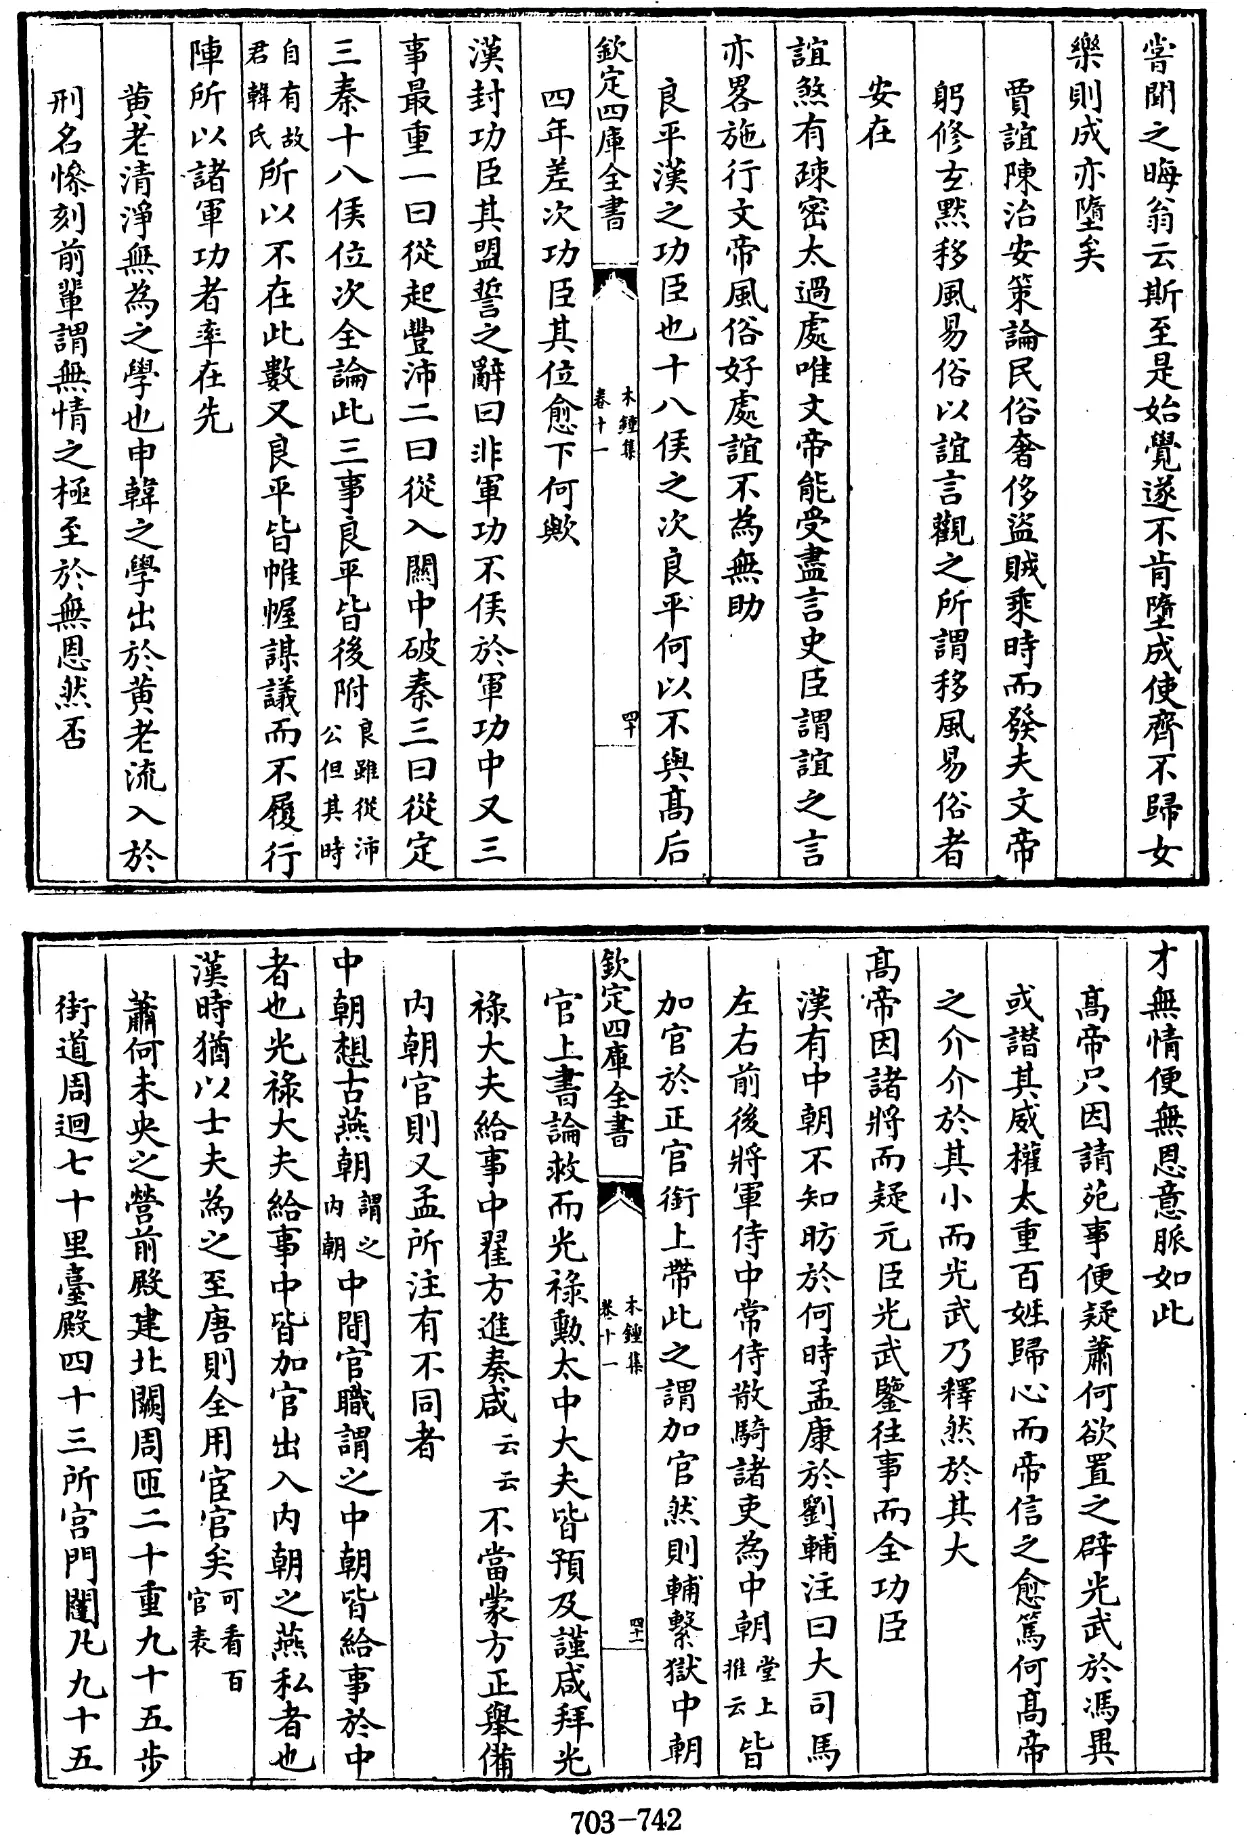 嘗聞之晦翁云斯至是始覺遂不肯墮成使齊不歸女
樂則成亦墮矣
賈誼陳治安策論民俗奢侈盜賊乘時而發夫文帝
躬修玄默移風易俗以誼言觀之所謂移風易俗者
安在
誼煞有疎密太過處唯文帝能受盡言史臣謂誼之言
亦畧施行文帝風俗好處誼不為無助
良平漢之功臣也十八侯之次良平何以不與高后
欽定四庫全書
木鍾集
卷十一
四十
四年差次功臣其位愈下何歟
漢封功臣其盟誓之辭曰非軍功不侯於軍功中又三
事最重一曰從起豐沛二曰從入關中破秦三曰從定
三秦十八侯位次全論此三事良平皆後附良雖從沛公但其時
自有故君韓氏所以不在此數又良平皆帷幄謀議而不履行
陣所以諸軍功者率在先
黄老清淨無為之學也申韓之學出於黄老流入於
刑名慘刻前輩謂無情之極至於無恩然否
才無情便無恩意脈如此
高帝只因請苑事便疑蕭何欲置之辟光武於馮異
或譖其威權太重百姓歸心而帝信之愈篤何高帝
之介介於其小而光武乃釋然於其大
高帝因諸將而疑元臣光武鑒往事而全功臣
漢有中朝不知昉於何時孟康於劉輔注曰大司馬
左右前後將軍侍中常侍散騎諸吏為中朝堂上推云皆
加官於正官銜上帶此之謂加官然則輔繫獄中朝
欽定四庫全書
木鍾集
卷十一
四十一
官上書論救而光祿勳太中大夫皆預及謹咸拜光
祿大夫給事中翟方進奏咸云云不當蒙方正舉備
内朝官則又孟所注有不同者
中朝想古燕朝謂之内朝中間官職謂之中朝皆給事於中
者也光祿大夫給事中皆加官出入内朝之燕私者也
漢時猶以士夫為之至唐則全用宦官矣可看百官表
蕭何未央之營前殿建北闕周匝二十重九十五步
街道周迴七十里臺殿四十三所宫門闥凡九十五
703-742